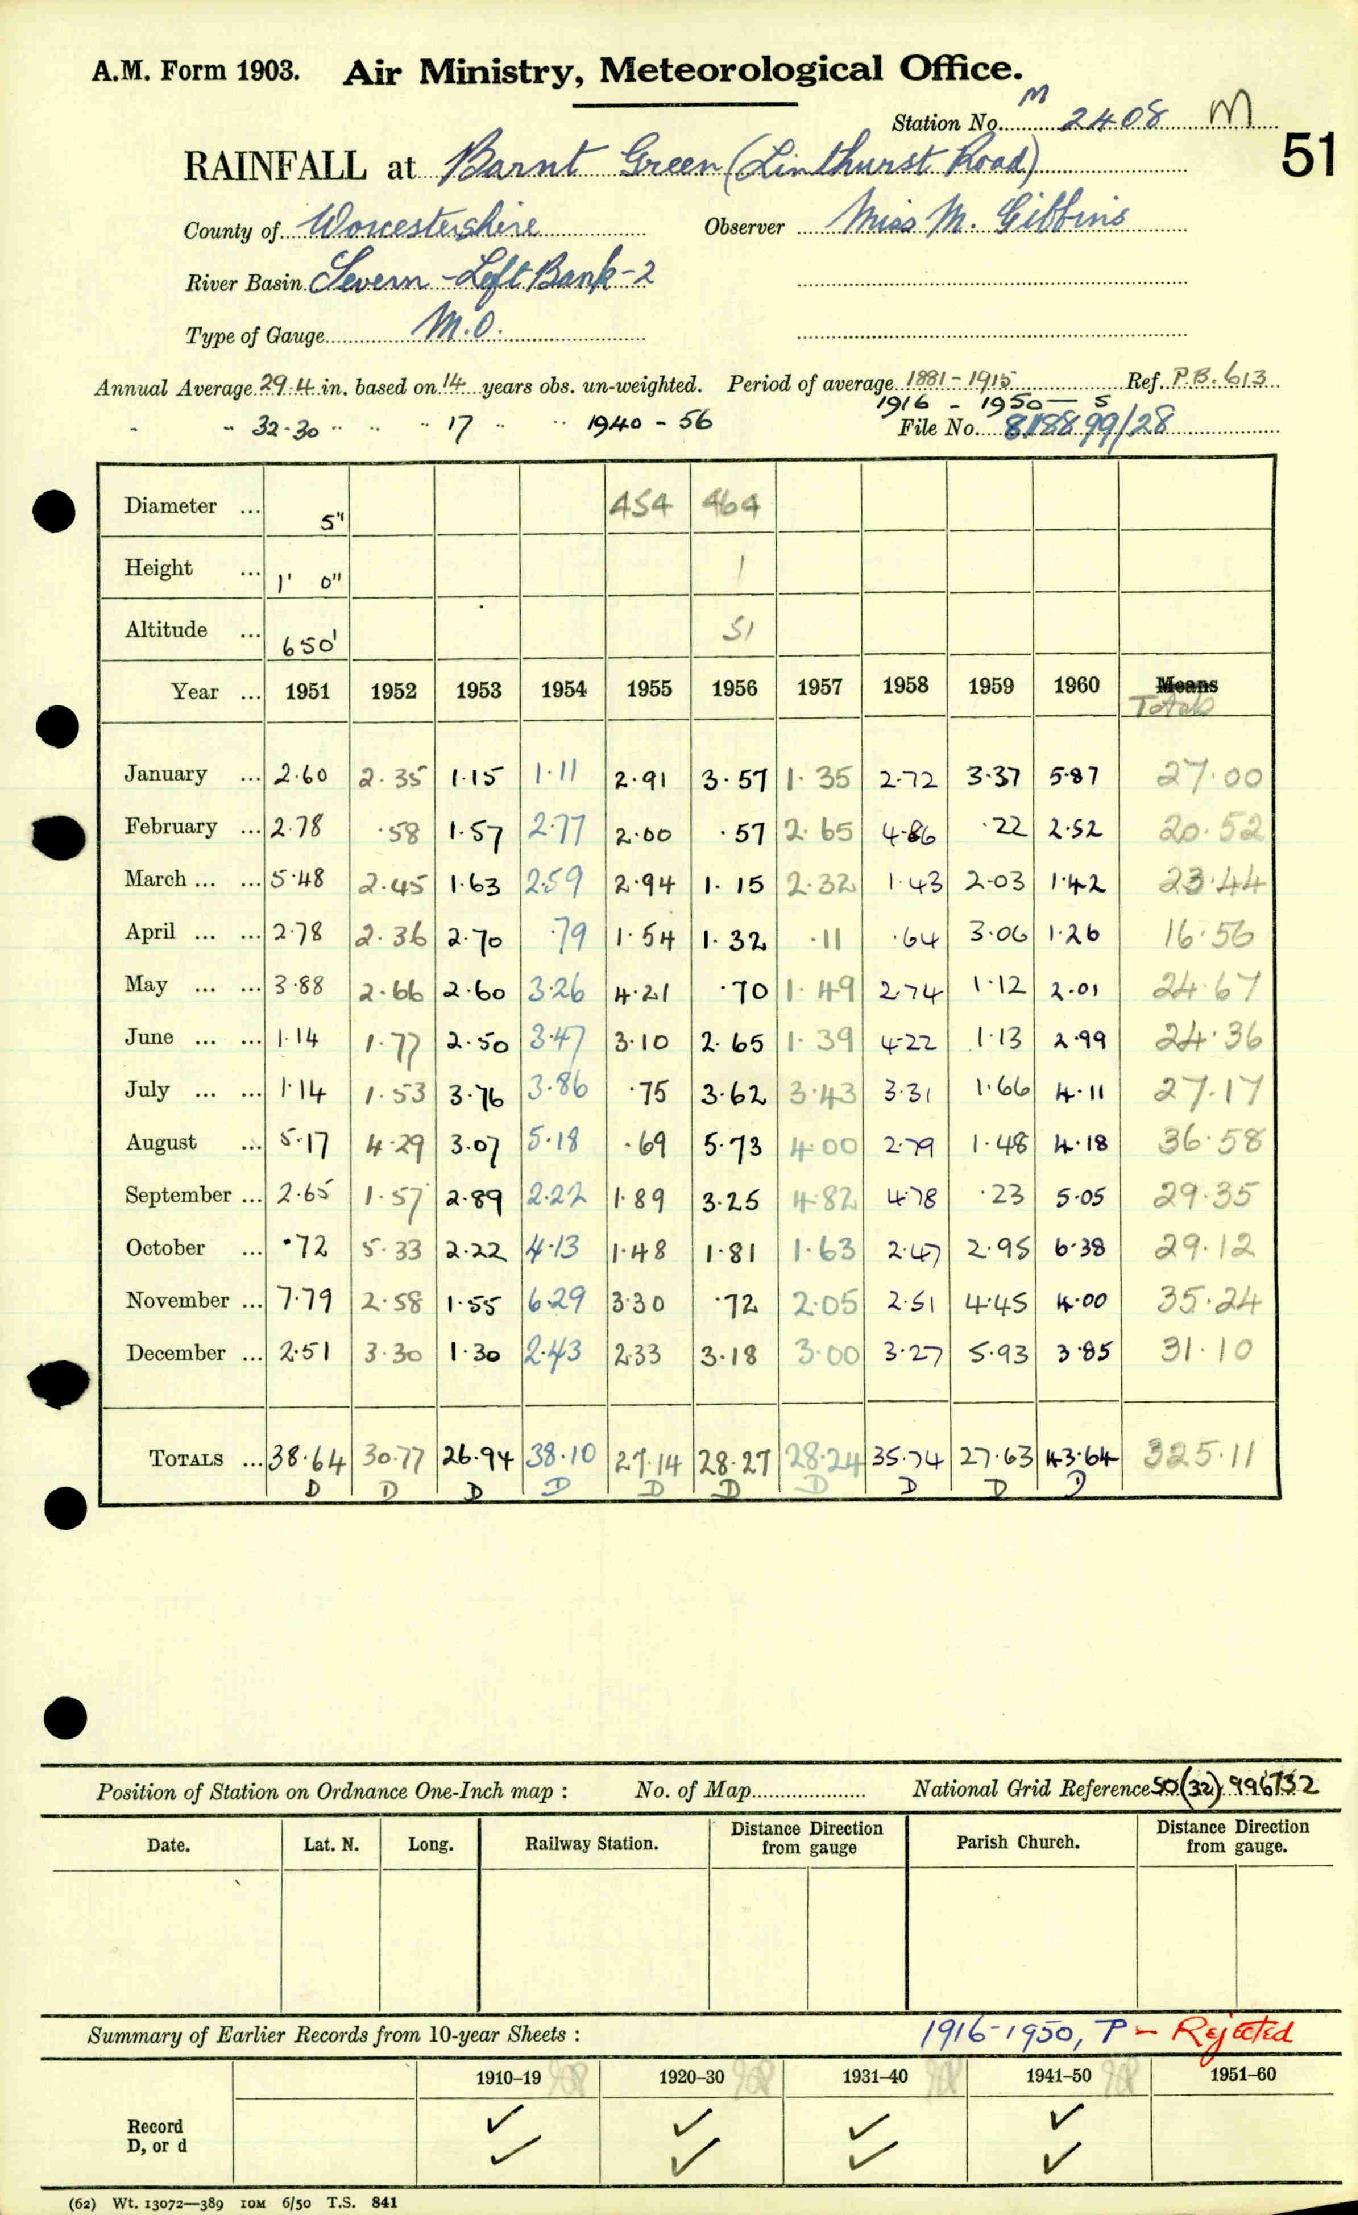 A.M. Form 1903. Air Ministry, Meteorological Office.
M
Station No. 2408 M
51
RAINFALL at Barnt Green (Linthurst Road)
County of Worcestershire Observer Miss M. Gibbins
River Basin Severn - Left Bank - 2
Type of Gauge M.O.
Annual Average 29.4 in. based on 14 years obs. un-weighted. Period of average 1881-1915 Ref. P.B. 613
1916 - 1950 — s
" " 32.30 " " " 17 " " 1940 - 56 File No. 818899/28
Diameter ... 5" 454 464
Height ... 1' 0" 1
Altitude ... 650' 51
Year ... 1951 1952 1953 1954 1955 1956 1957 1958 1959 1960 Means
Totals
January ... 2.60 2.35 1.15 1.11 2.91 3.57 1.35 2.72 3.37 5.87 27.00
February ... 2.78 .58 1.57 2.77 2.00 .57 2.65 4.86 .22 2.52 20.52
March ... ... 5.48 2.45 1.63 2.59 2.94 1.15 2.32 1.43 2.03 1.42 23.44
April ... ... 2.78 2.36 2.70 .79 1.54 1.32 .11 .64 3.06 1.26 16.56
May ... ... 3.88 2.66 2.60 3.26 4.21 .70 1.49 2.74 1.12 2.01 24.67
June ... ... 1.14 1.77 2.50 3.47 3.10 2.65 1.39 4.22 1.13 2.99 24.36
July ... ... 1.14 1.53 3.76 3.86 .75 3.62 3.43 3.31 1.66 4.11 27.17
August ... 5.17 4.29 3.07 5.18 .69 5.73 4.00 2.79 1.48 4.18 36.58
September ... 2.65 1.57 2.89 2.22 1.89 3.25 4.82 4.78 .23 5.05 29.35
October ... .72 5.33 2.22 4.13 1.48 1.81 1.63 2.47 2.95 6.38 29.12
November ... 7.79 2.58 1.55 6.29 3.30 .72 2.05 2.51 4.45 4.00 35.24
December ... 2.51 3.30 1.30 2.43 2.33 3.18 3.00 3.27 5.93 3.85 31.10
TOTALS ... 38.64 30.77 26.94 38.10 27.14 28.27 28.24 35.74 27.63 43.64 325.11
D D D D D D D D D D
Position of Station on Ordnance One-Inch map : No. of Map National Grid Reference SO(32) 996732
Date. Lat. N. Long. Railway Station. Distance Direction from gauge Parish Church. Distance Direction from gauge.
Summary of Earlier Records from 10-year Sheets : 1916-1950, P - Rejected
1910-19 1920-30 1931-40 1941-50 1951-60
Record ✓ ✓ ✓ ✓
D, or d ✓ ✓ ✓ ✓
(62) Wt. 13072—389 10M 6/50 T.S. 841